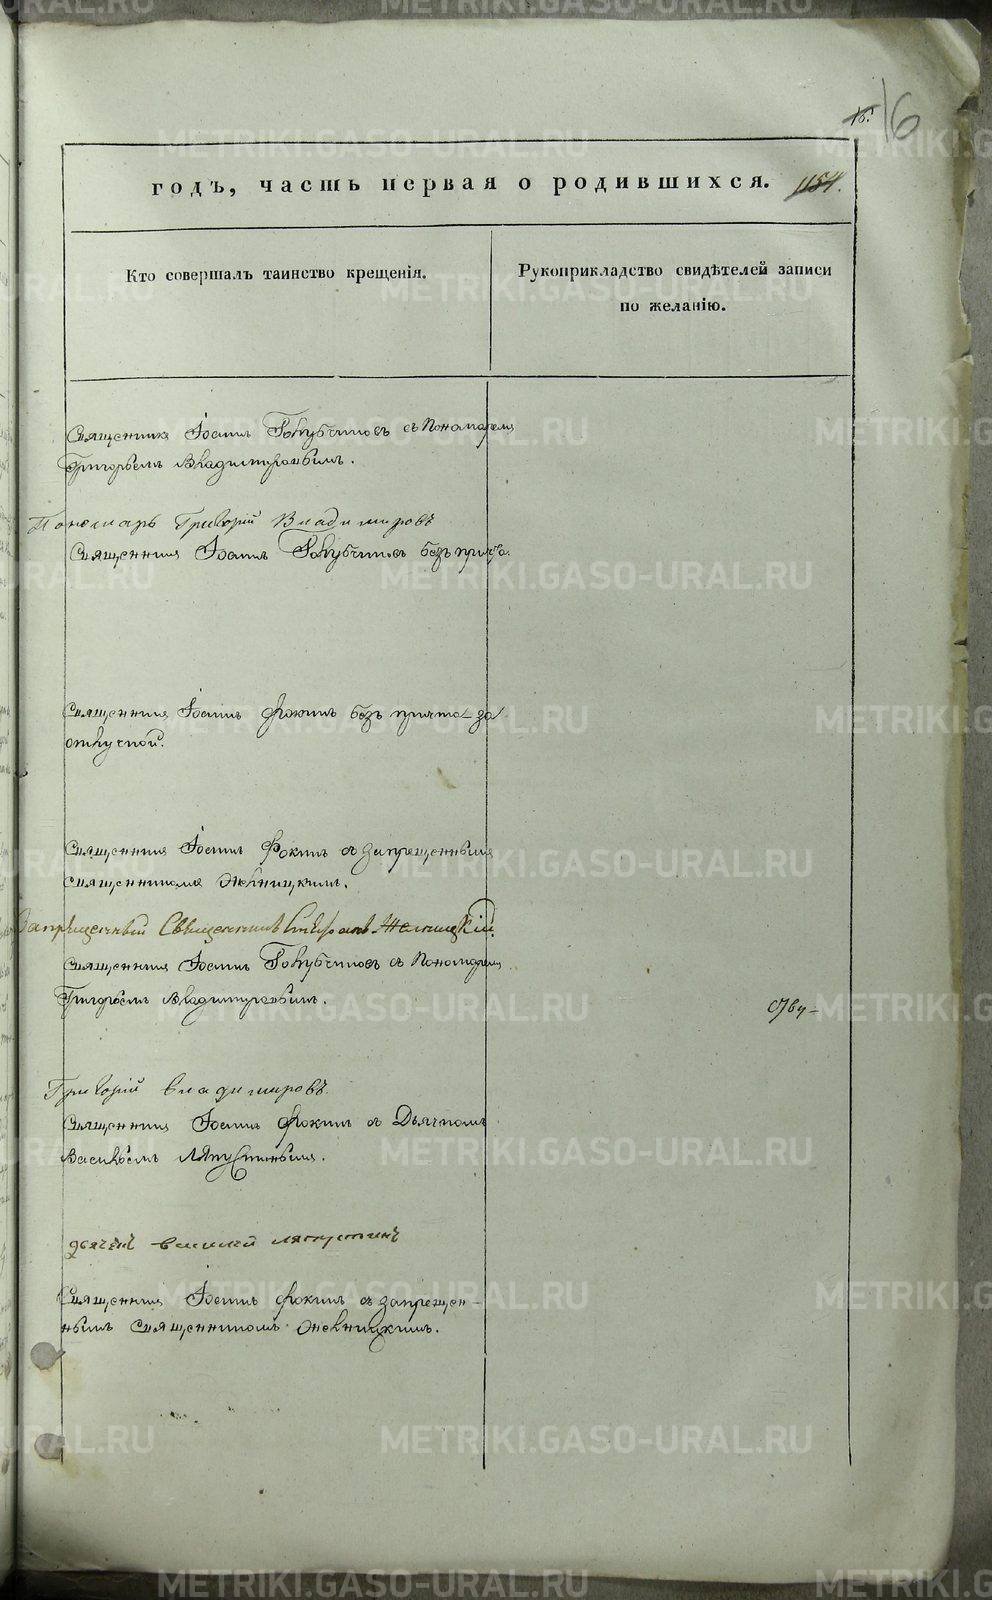 16
16.
годъ, часть первая о родившихся.
1154.
Кто совершалъ таинство крещенія.
Рукоприкладство свидѣтелей записи
по желанію.
Священникъ Іоаннъ Голубчиковъ съ Пономаремъ
Григорьемъ Владимировымъ.
Пономарь Григорій Владимировъ
Священникъ Іоаннъ Голубчиковъ безъ причта.
Священникъ Іоаннъ Фокинъ безъ причта за
отлучкой.
Священникъ Іоаннъ Фокинъ съ запрещеннымъ
священникомъ Желницкимъ.
Запрещенный Священникъ Желницкій.
Священникъ Іоаннъ Голубчиковъ съ Пономаремъ
Григорьемъ Владимировымъ.
Григорій Владимировъ
Священникъ Іоаннъ Фокинъ съ Дьячкомъ
Васильемъ Ляпустинымъ.
дьячекъ василий ляпустинъ
Священникъ Іоаннъ Фокинъ съ запрещен-
нымъ священникомъ Желницкимъ.
METRIKI.GASO-URAL.RU